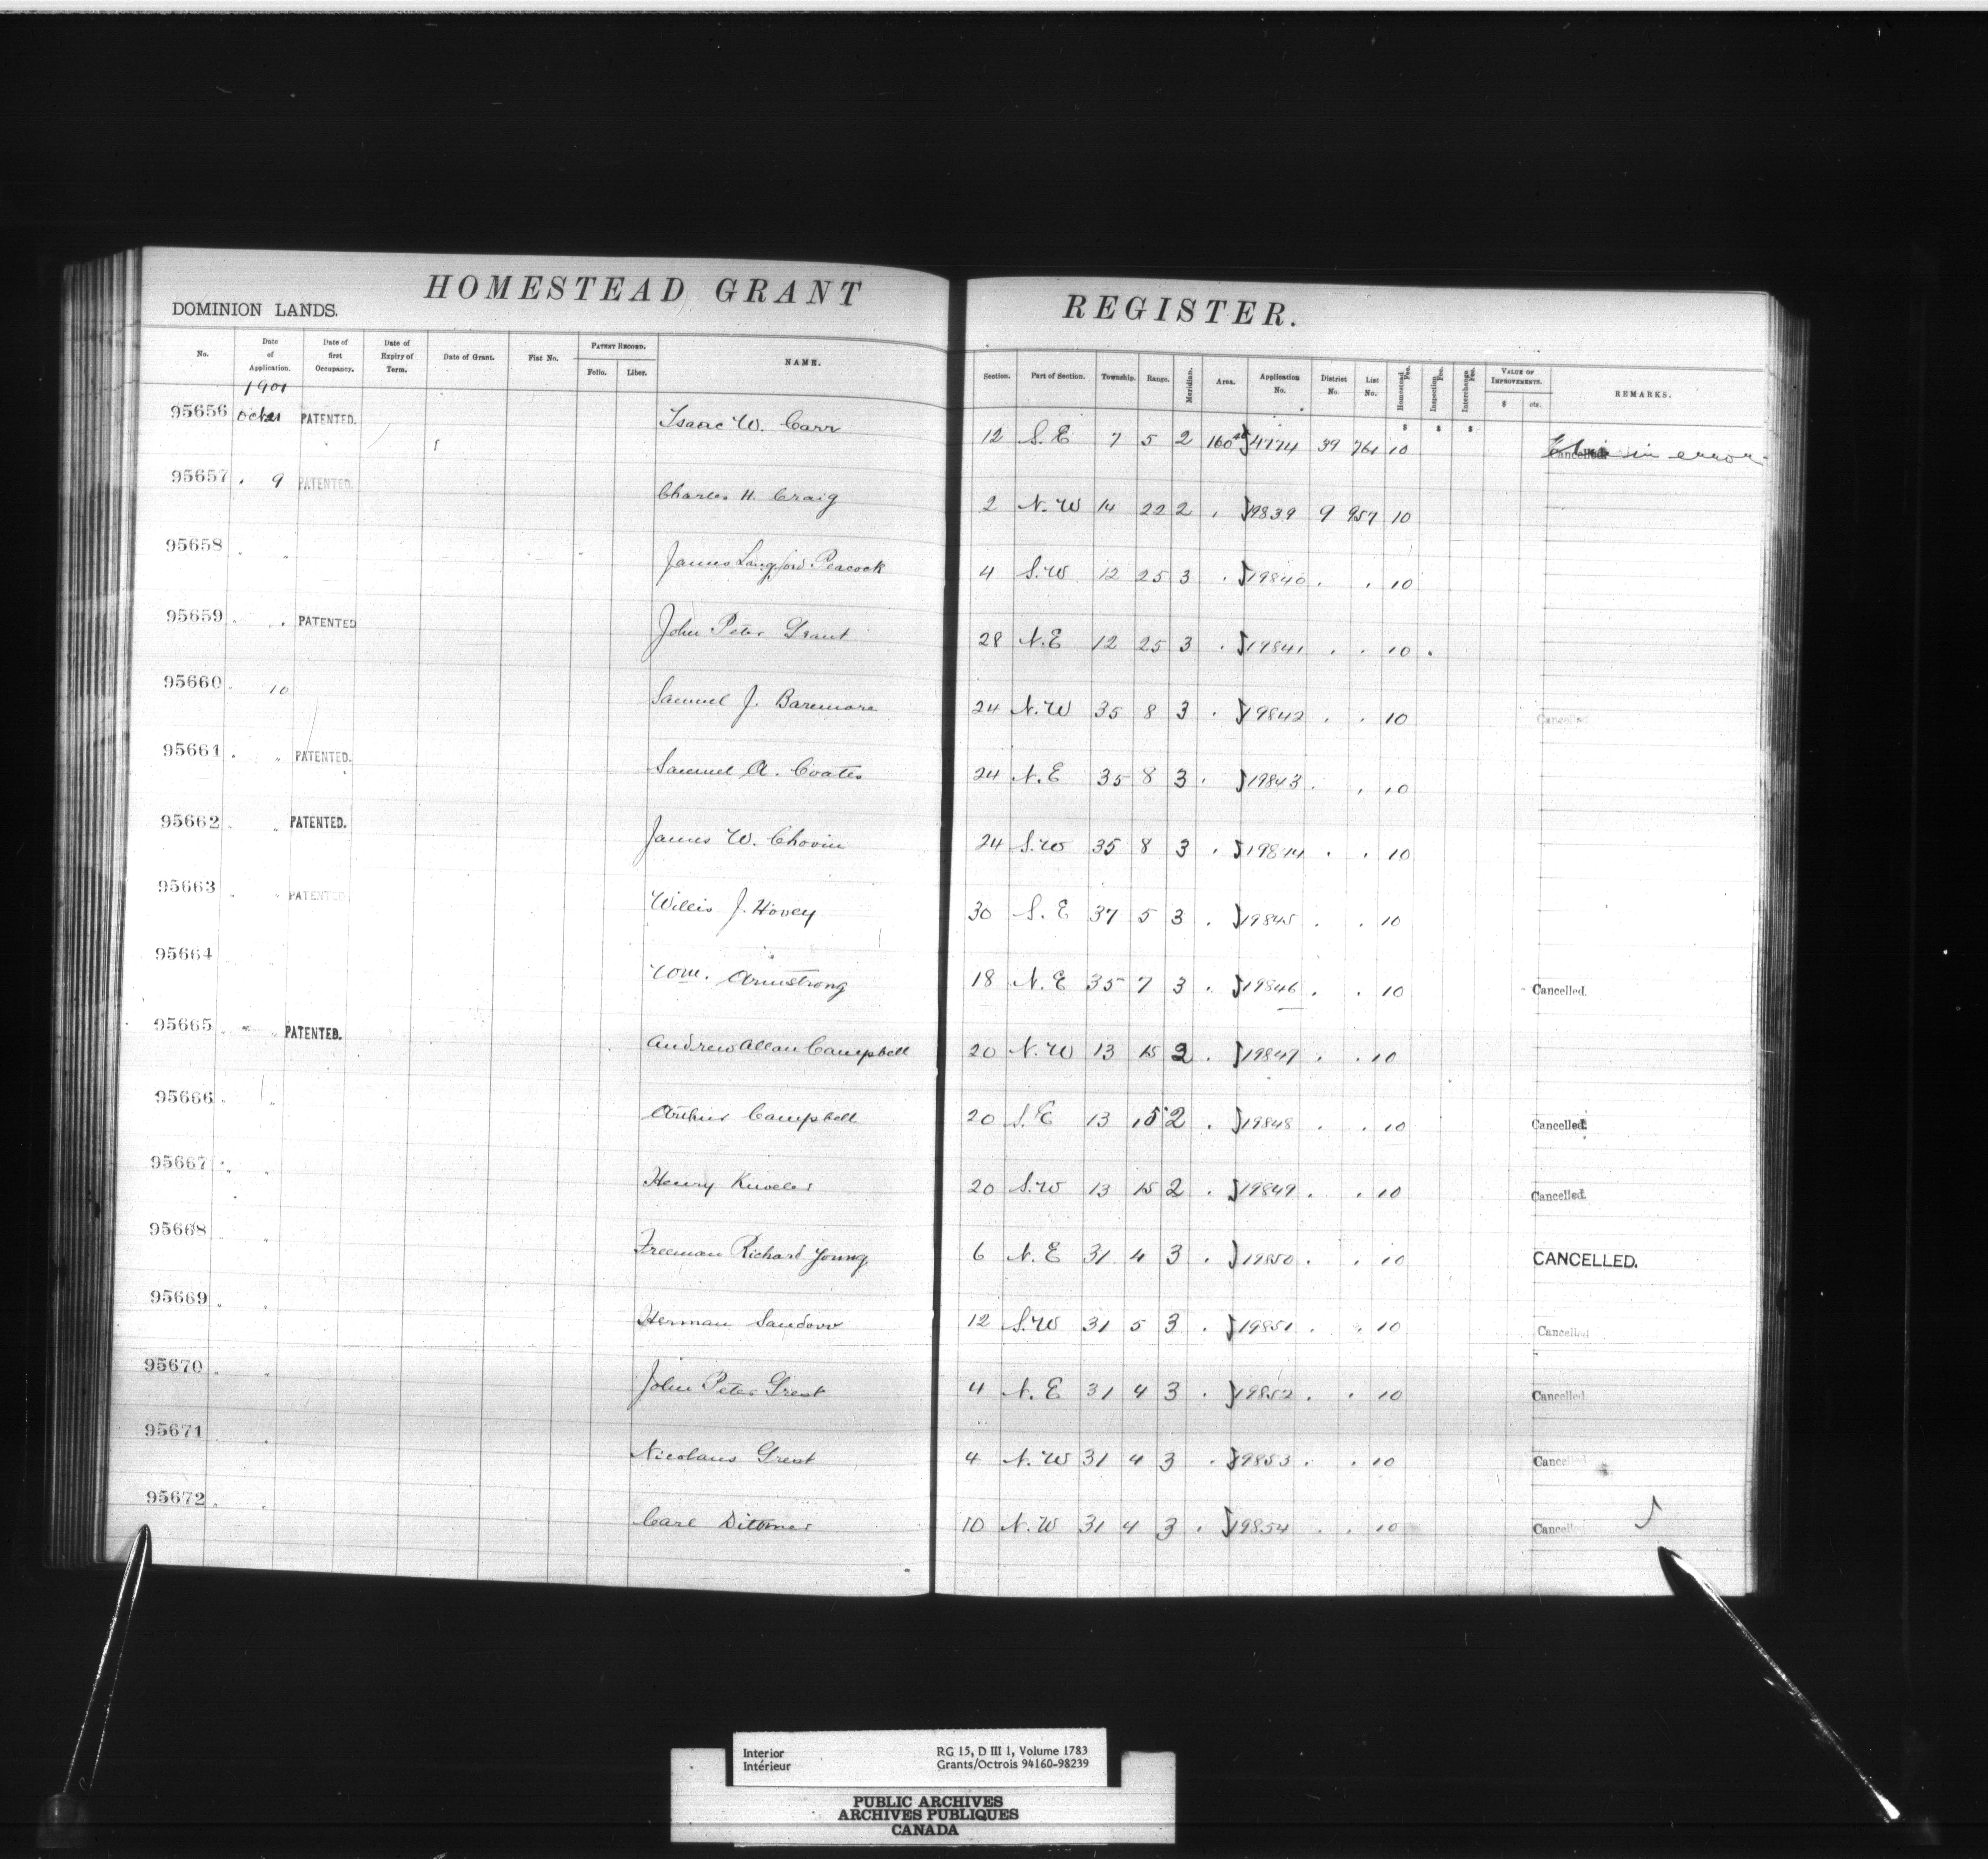 HOMESTEAD GRANT REGISTER.
DOMINION LANDS.
No. Date of Application. Date of first Occupancy. Date of Expiry of Term. Date of Grant. Fiat No. PATENT RECORD. Folio. Liber. NAME. Section. Part of Section. Township. Range. Meridian. Area. Application No. District No. List No. Homestead Fee. Inspection Fee. Interchange Fee. VALUE OF IMPROVEMENTS. $ cts. REMARKS.
1901
95656 PATENTED. Isaac W. Carr 12 S.E 7 5 2 160 4774 39 761 10 Cancelled in error
95657 . 9 PATENTED. Charles H. Craig 2 N.W 14 22 2 . 19839 9 957 10
95658 " James Langford Peacock 4 S.W 12 25 3 . 19840 . . 10
95659 . . PATENTED John Peter Grant 28 N.E 12 25 3 . 19841 . . 10 .
95660 . 10 Samuel J. Baremore 24 N.W 35 8 3 . 19842 . . 10 Cancelled
95661 . " PATENTED. Samuel A. Coates 24 N.E 35 8 3 . 19843 . . 10
95662 . " PATENTED. James W. Chovin 24 S.W 35 8 3 . 19844 . . 10
95663 . " PATENTED Willis J. Hovey 30 S.E 37 5 3 . 19845 . . 10
95664 Wm. Armstrong 18 N.E 35 7 3 . 19846 . . 10 Cancelled.
95665 " " PATENTED. Andrew Allan Campbell 20 N.W 13 15 2 . 19847 . . 10
95666 . " Arthur Campbell 20 S.E 13 15 2 . 19848 . . 10 Cancelled.
95667 . " Henry 20 S.W 13 15 2 . 19849 . . 10 Cancelled.
95668 " Freeman Richard Young 6 N.E 31 4 3 . 19850 . . 10 CANCELLED.
95669 . " Herman 12 S.W 31 5 3 . 19851 . " 10 Cancelled
95670 . " John Peter Grest 4 N.E 31 4 3 . 19852 . . 10 Cancelled.
95671 . Nicolaus Grest 4 N.W 31 4 3 . 19853 . . 10 Cancelled
95672 . " Carl Dittmer 10 N.W 31 4 3 . 19854 . . 10 Cancel
Interior RG 15, D III 1, Volume 1783
Intérieur Grants/Octrois 94160-98239
PUBLIC ARCHIVES
ARCHIVES PUBLIQUES
CANADA